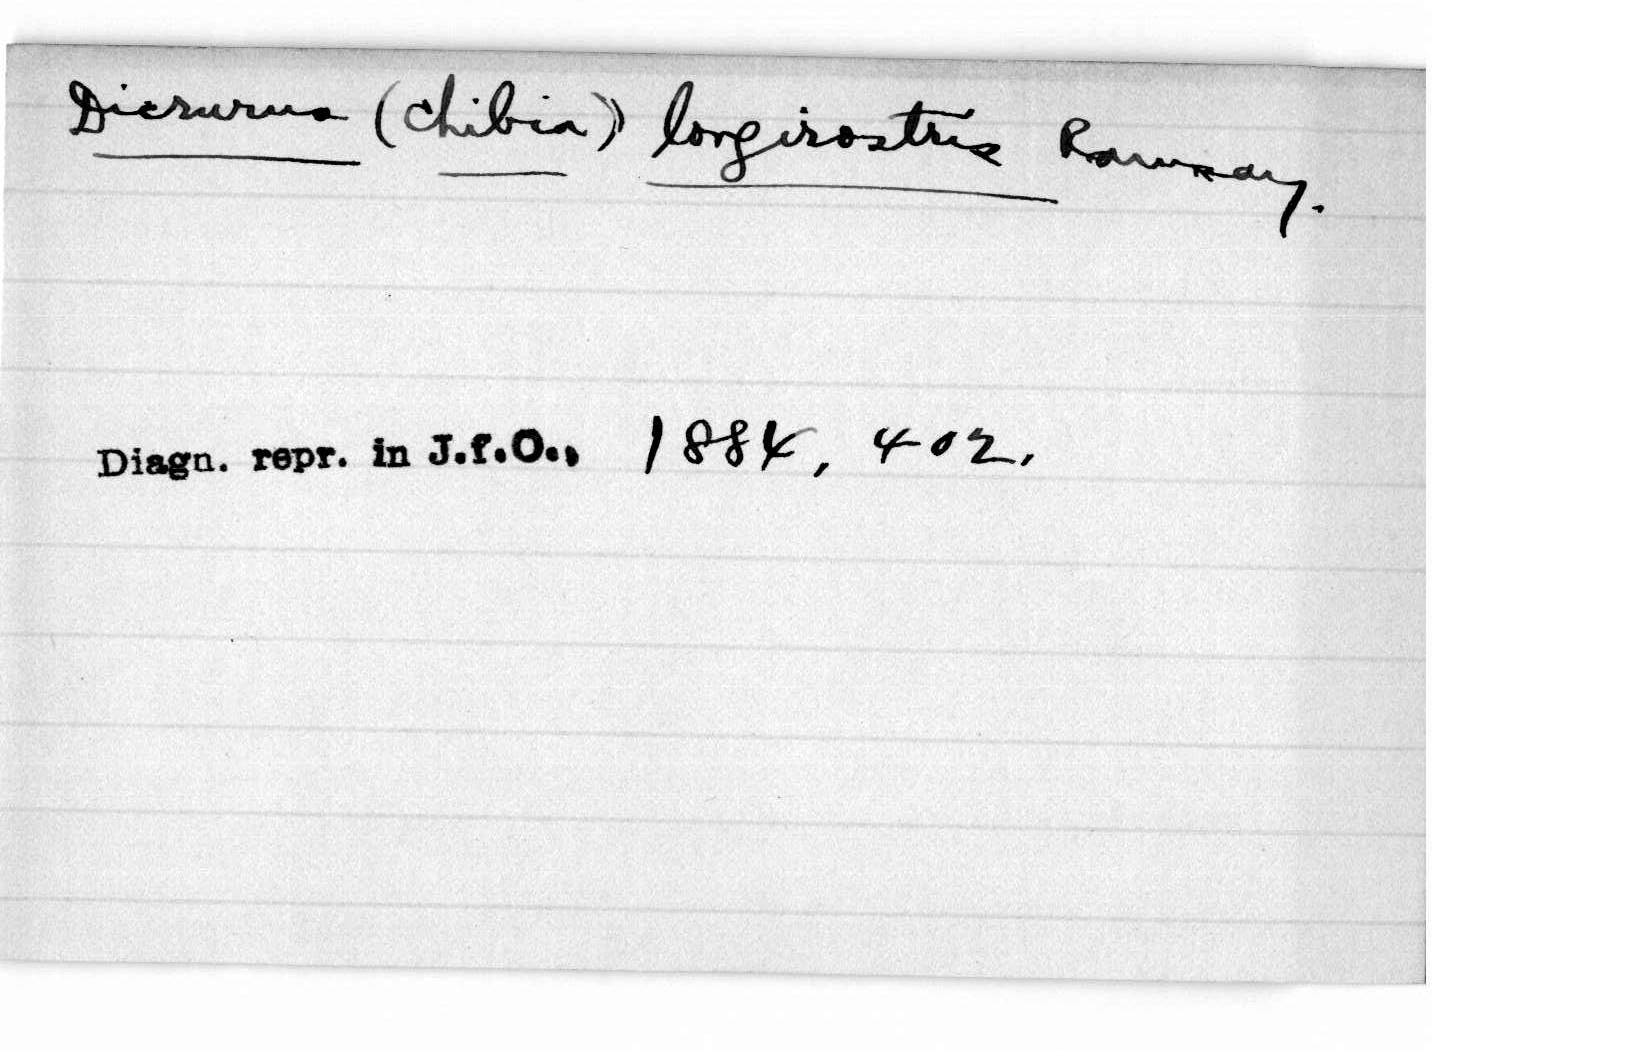 Dicrurus (Chibia) longirostris Ramsay.
Diagn. repr. in J.f.O., 1884, 402.